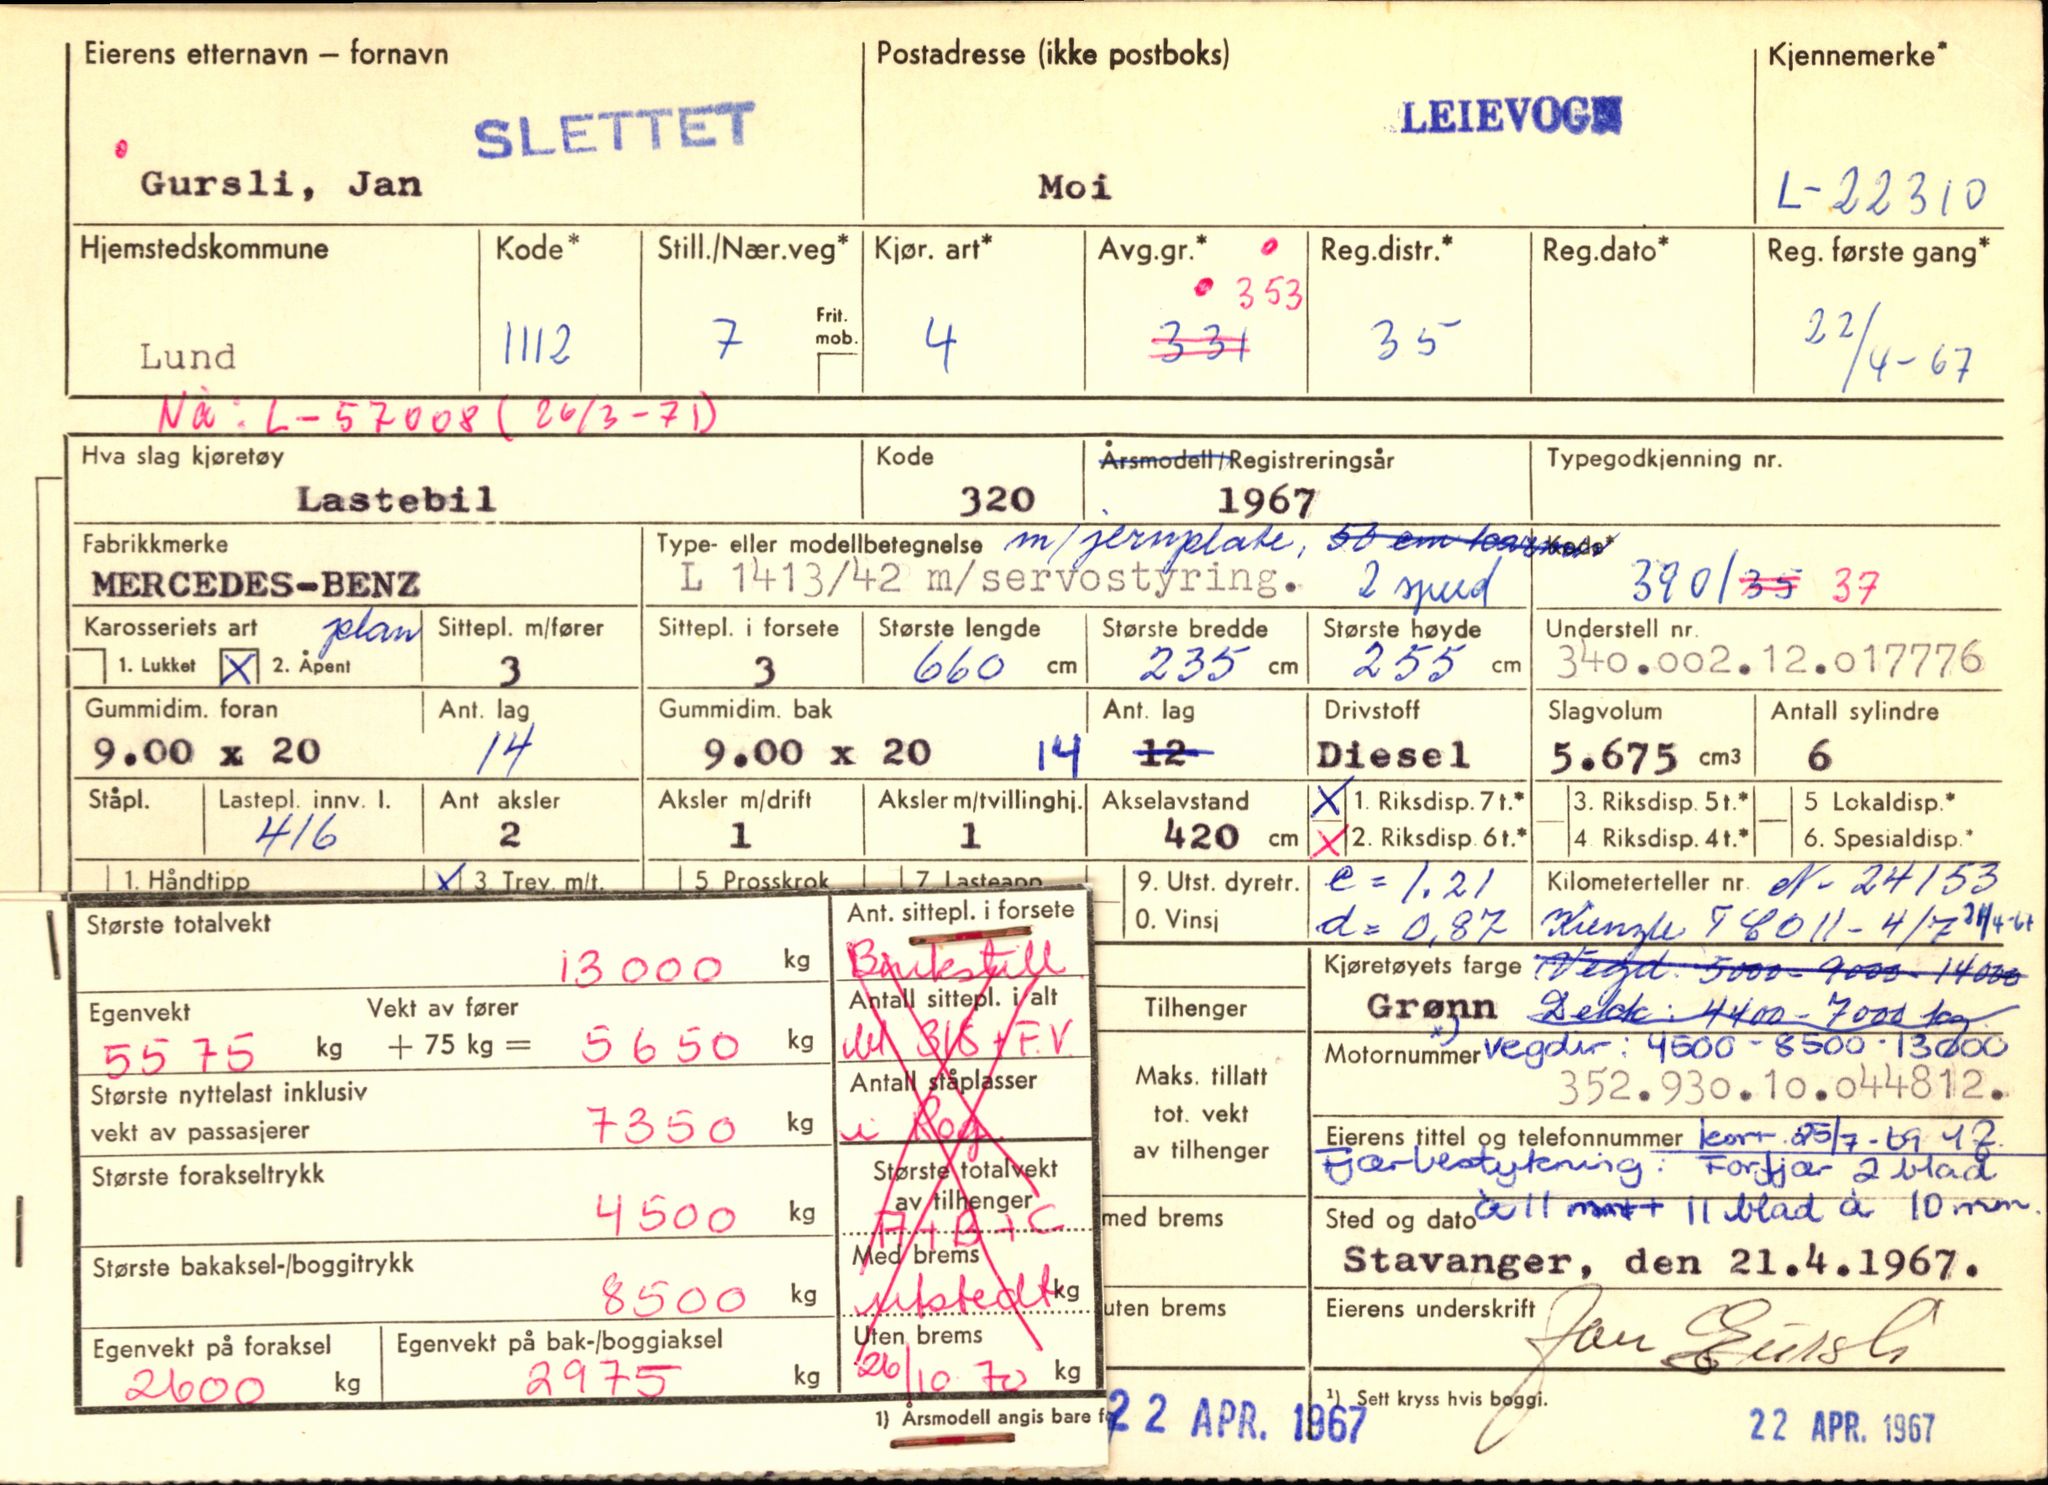 Eierens etternavn – fornavn
Postadresse (ikke postboks)
Kjennemerke*
SLETTET
LEIEVOGN
Gursli, Jan
Moi
L-22310
Hjemstedskommune Kode* Still./Nær.veg* Kjør. art* Avg.gr.* Reg.distr.* Reg.dato* Reg. første gang*
353
Frit. mob.
Lund 1112 7 4 331 35 22/4-67
Nå: L-57008 (26/3-71)
Hva slag kjøretøy Kode Årsmodell/Registreringsår Typegodkjenning nr.
Lastebil 320 1967
Fabrikkmerke Type- eller modellbetegnelse m/jernplate, 50 cm Kode*
MERCEDES-BENZ L 1413/42 m/servostyring. 2 speed 390/35 37
Karosseriets art plan Sittepl. m/fører Sittepl. i forsete Største lengde Største bredde Største høyde Understell nr.
1. Lukket X 2. Åpent 3 3 660 cm 235 cm 255 cm 340.002.12.017776
Gummidim. foran Ant. lag Gummidim. bak Ant. lag Drivstoff Slagvolum Antall sylindre
9.00 x 20 14 9.00 x 20 14 12 Diesel 5.675 cm3 6
Ståpl. Lastepl. innv. l. Ant aksler Aksler m/drift Aksler m/tvillinghj. Akselavstand X 1. Riksdisp. 7 t.* 3. Riksdisp. 5 t.* 5 Lokaldisp.*
416 2 1 1 420 cm X 2. Riksdisp. 6 t.* 4 Riksdisp. 4 t.* 6. Spesialdisp.*
1. Håndtipp X 3 Trev. m/t. 5 Prosskrok 7 Lasteapp 9. Utst. dyretr. c = 1.21 Kilometerteller nr. N-24153
0. Vinsj d = 0,87 Kienzle TCO 11-4/7 21/4-67
Største totalvekt
13000 kg
Egenvekt Vekt av fører
5575 kg + 75 kg = 5650 kg
Største nyttelast inklusiv
vekt av passasjerer 7350 kg
Største forakseltrykk
4500 kg
Største bakaksel-/boggitrykk
8500 kg
Egenvekt på foraksel Egenvekt på bak-/boggiaksel
2600 kg 2975 kg
Ant. sittepl. i forsete
Antall sittepl. i alt
bl 3/8 + F.V.
Antall ståplasser
i Rog.
Største totalvekt
av tilhenger
A + B + C
Med brems
utstedt kg
Uten brems
26/10 70 kg
1) Årsmodell angis bare f
Tilhenger
Maks. tillatt
tot. vekt
av tilhenger
med brems
uten brems
Kjøretøyets farge Vegd. 5000-9000-14000
Grønn Dekk: 4400-7000 kg.
Motornummer *) vegdir: 4500-8500-13000
352.930.10.044812.
Eierens tittel og telefonnummer kort 25/7-69
Fjærbestykning: Forfjær 2 blad
Sted og dato à 11 mm + 11 blad à 10 mm.
Stavanger, den 21.4.1967.
Eierens underskrift
Jan Gursli
¹) Sett kryss hvis boggi.
22 APR. 1967
22 APR. 1967